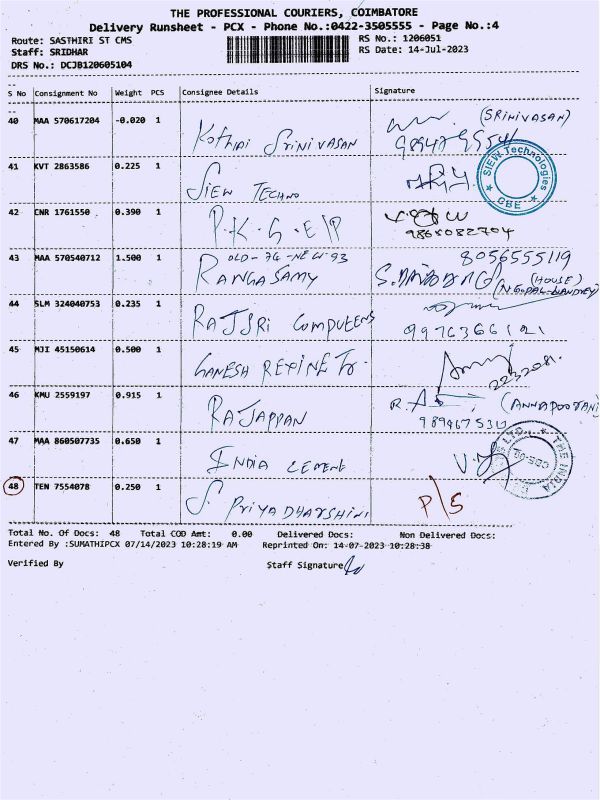 THE PROFESSIONAL COURIERS, COIMBATORE
Delivery Runsheet - PCX - Phone No.:0422-3505555 - Page No.:4
Route: SASTHIRI ST CMS RS No.: 1206051
Staff: SRIDHAR RS Date: 14-Jul-2023
DRS No.: DCJB120605104
S No Consignment No Weight PCS Consignee Details Signature
40 MAA 570617204 -0.020 1 Kothari Srinivasan (SRINIVASAN)
41 KVT 2863586 0.225 1 SIEW TECHNO SIEW Technologies CBE
42 CNR 1761550 0.390 1 P.K.G.E/P
9865082704
43 MAA 570540712 1.500 1 OLD-76-NEW-93 8056555119
RANGASAMY (HOUSE)
44 SLM 324040753 0.235 1 RAJSRI COMPUTERS
9976366121
45 MJI 45150614 0.500 1 GANESH REPINE Tr.
46 KMU 2559197 0.915 1 RAJAPPAN R.
47 MAA 860507735 0.650 1 INDIA CEMENT THE INDIA
48 TEN 7554078 0.250 1 S. PRIYADHARSHINI P/S
Total No. Of Docs: 48 Total COD Amt: 0.00 Delivered Docs: Non Delivered Docs:
Entered By :SUMATHIPCX 07/14/2023 10:28:19 AM Reprinted On: 14-07-2023 10:28:38
Verified By Staff Signature